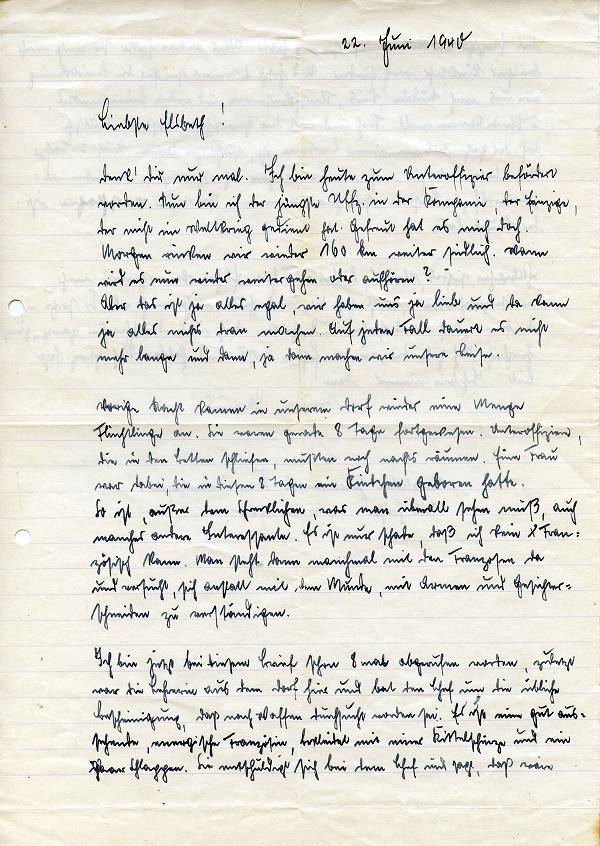 22. Juni 1940
Liebste Elsbeth!
Denk' dir nur mal. Ich bin heute zum Unteroffizier befördert
worden. Nun bin ich der jüngste Uffz. in der Kompanie, der Einzige,
der nicht im Weltkrieg gedient hat. Gefreut hat es mich doch.
Morgen rücken wir wieder 160 km weiter südlich. Wann
wird es nun wieder weitergehen oder aufhören?
Aber das ist ja alles egal, wir haben uns ja lieb und da kann
ja alles nichts dran machen. Auf jeden Fall dauert es nicht
mehr lange und dann, ja dann machen wir unsere Reise.
Vorige Nacht kamen in unserem Dorf wieder eine Menge
Flüchtlinge an. Sie waren gerade 8 Tage fortgewesen. Unteroffiziere,
die in den Betten schliefen, mußten noch nachts räumen. Eine Frau
war dabei, die in diesen 8 Tagen ein Kindchen geboren hatte.
So ist, außer dem Schrecklichen, was man überall sehen muß, auch
manches andere Interessante. Es ist nur schade, daß ich kein Fran-
zösisch kann. Man steht dann manchmal mit den Franzosen da
und versucht, sich anstatt mit dem Munde, mit Armen und Gesichter-
schneiden zu verständigen.
Ich bin jetzt bei diesem Brief schon 8 mal abgerufen worden, zuletzt
war die Lehrerin aus dem Dorf hier und bat den Chef um die übliche
Bescheinigung, daß nach Waffen durchsucht worden sei. Es ist eine gut aus-
sehende, energische Französin, bekleidet mit einer Kittelschürze und ein
Paar Schlappen. Sie entschuldigt sich bei dem Chef und sagt, daß